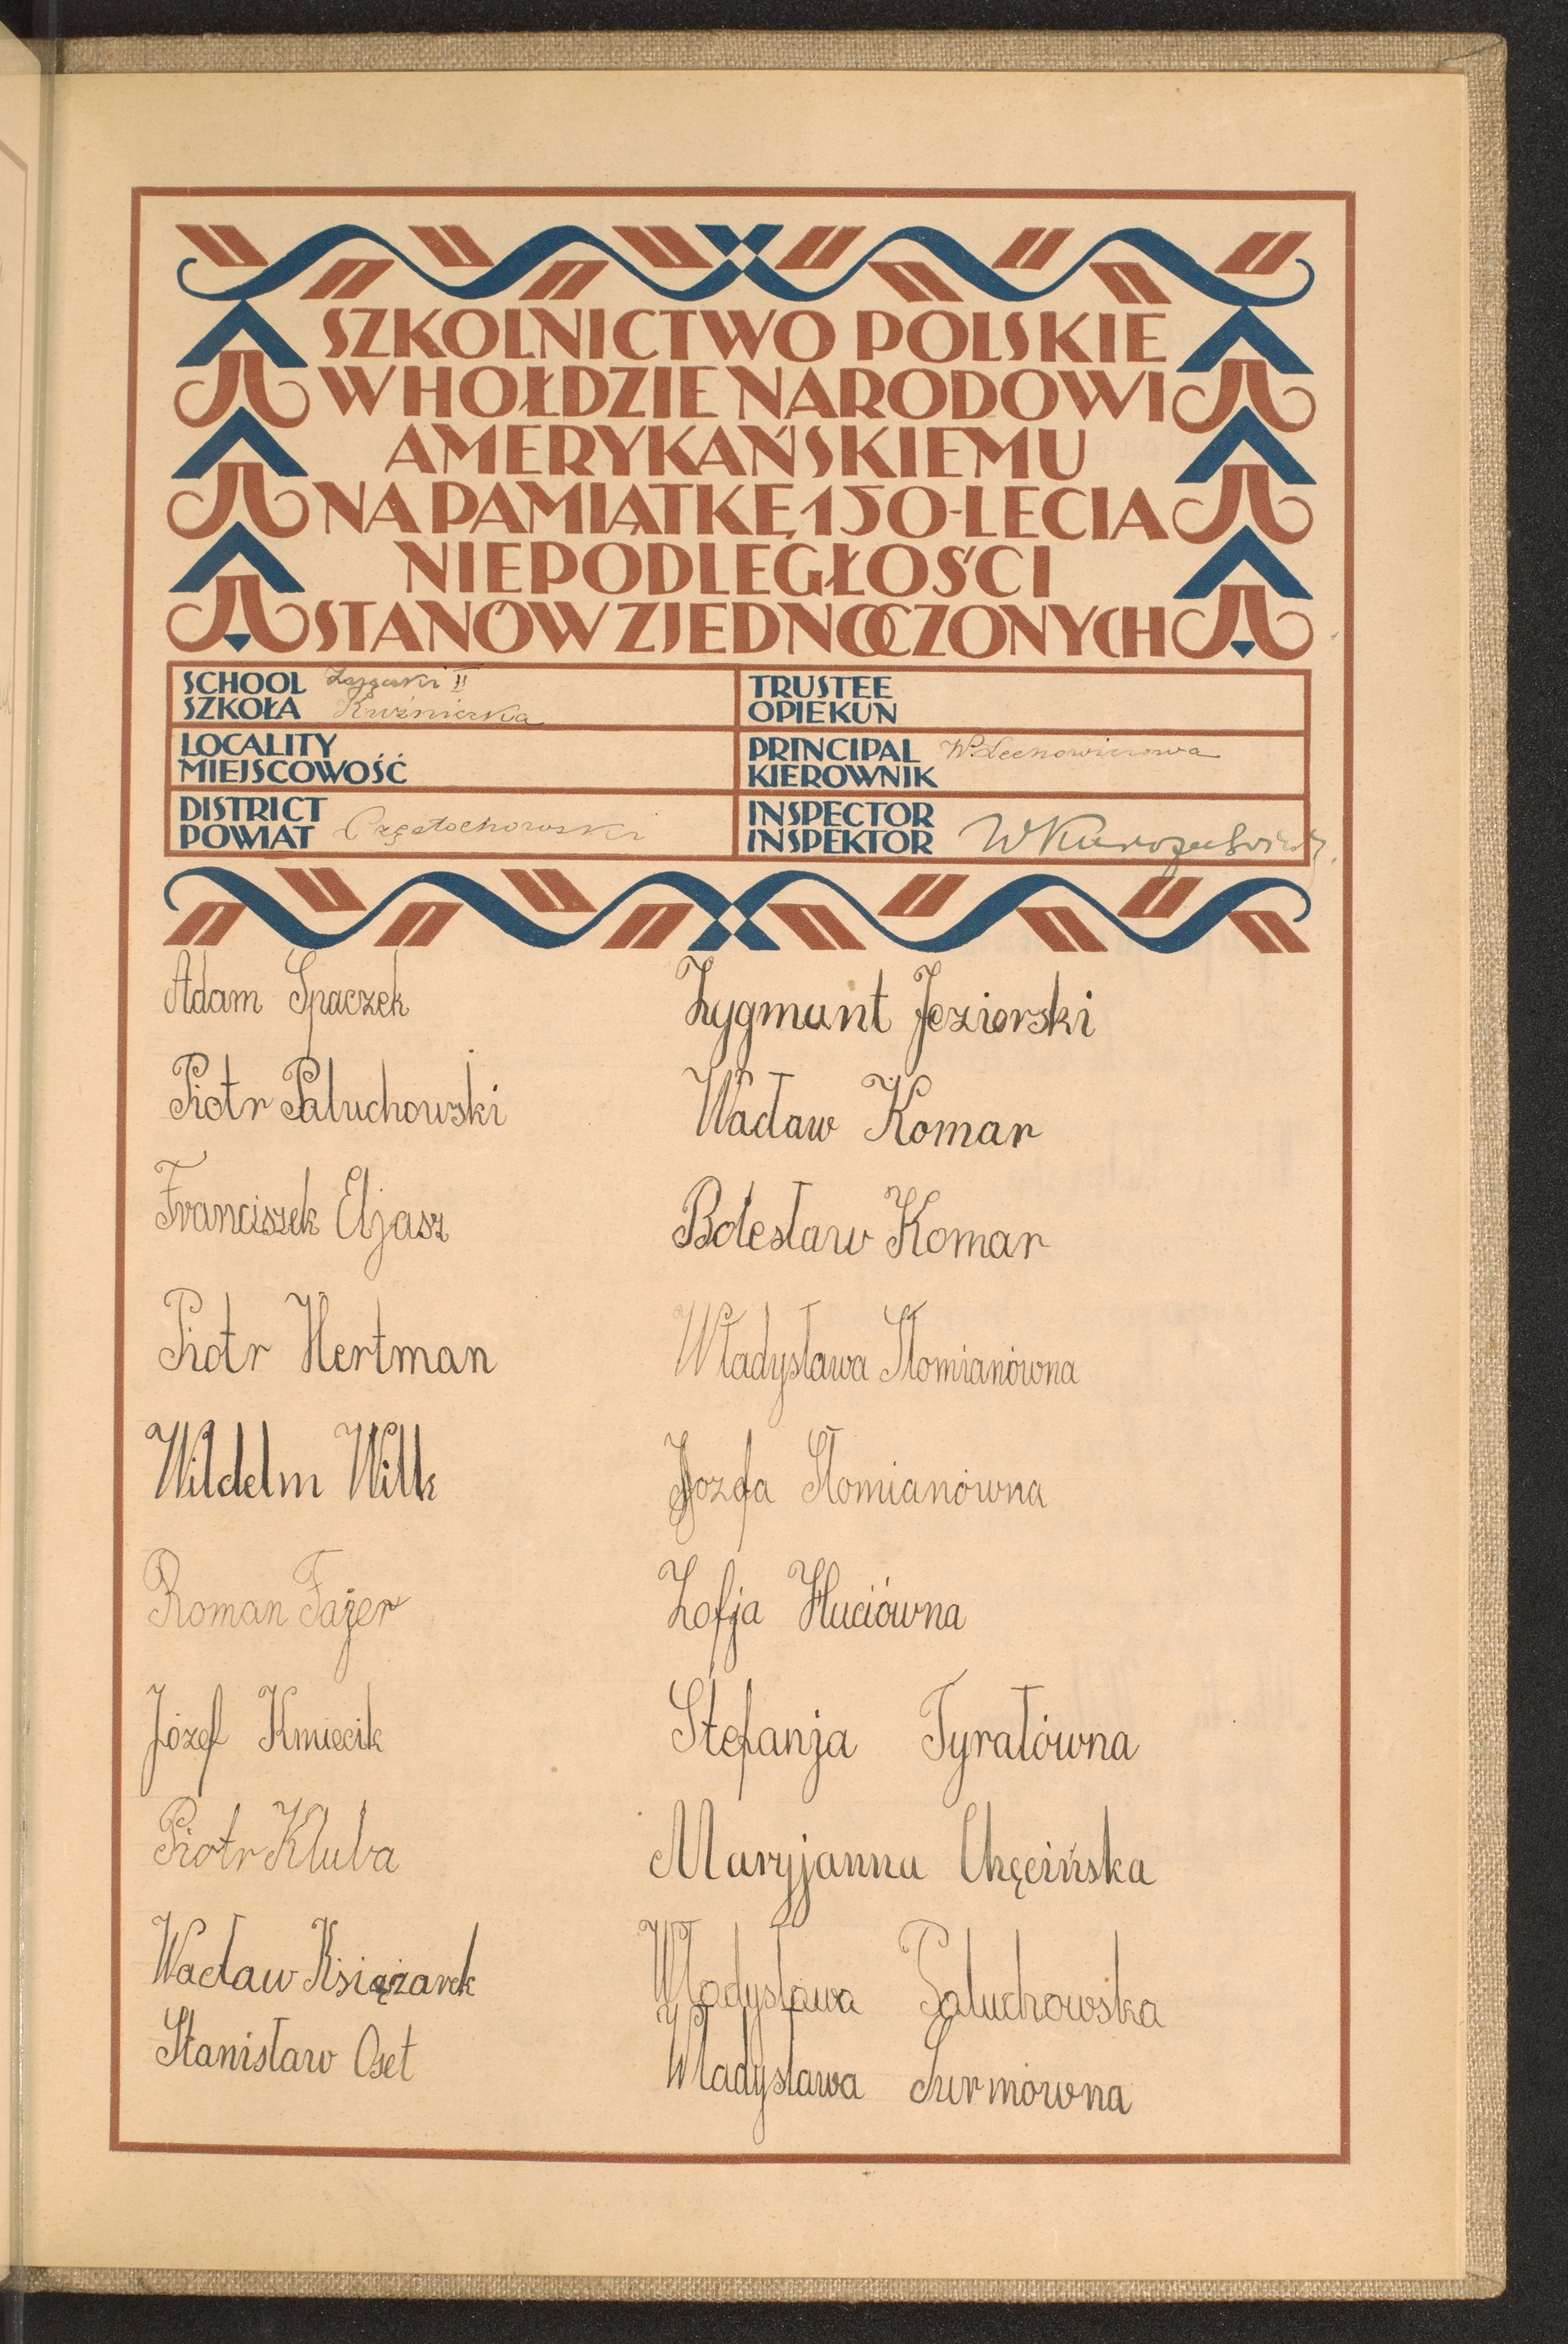 SZKOLNICTWO POLSKIE
W HOŁDZIE NARODOWI
AMERYKAŃSKIEMU
NA PAMIĄTKĘ 150-LECIA
NIEPODLEGŁOŚCI
STANÓW ZJEDNOCZONYCH
SCHOOL
SZKOŁA Kuźniczka
LOCALITY
MIEJSCOWOŚĆ
DISTRICT
POWIAT Częstochowski
TRUSTEE
OPIEKUN
PRINCIPAL
KIEROWNIK
INSPECTOR
INSPEKTOR
Adam Spaczek
Piotr Paluchowski
Franciszek Eljasz
Piotr Hertman
Wildelm Wilk
Roman Fajer
Józef Kmiecik
Piotr Kluba
Wacław Książarek
Stanisław Oset
Zygmunt Jezierski
Wacław Komar
Bolesław Komar
Władysława Słomianówna
Józefa Słomianówna
Zofja Huciówna
Stefanja Tyrałówna
Maryjanna Chęcińska
Władysława Paluchowska
Władysława Surmówna